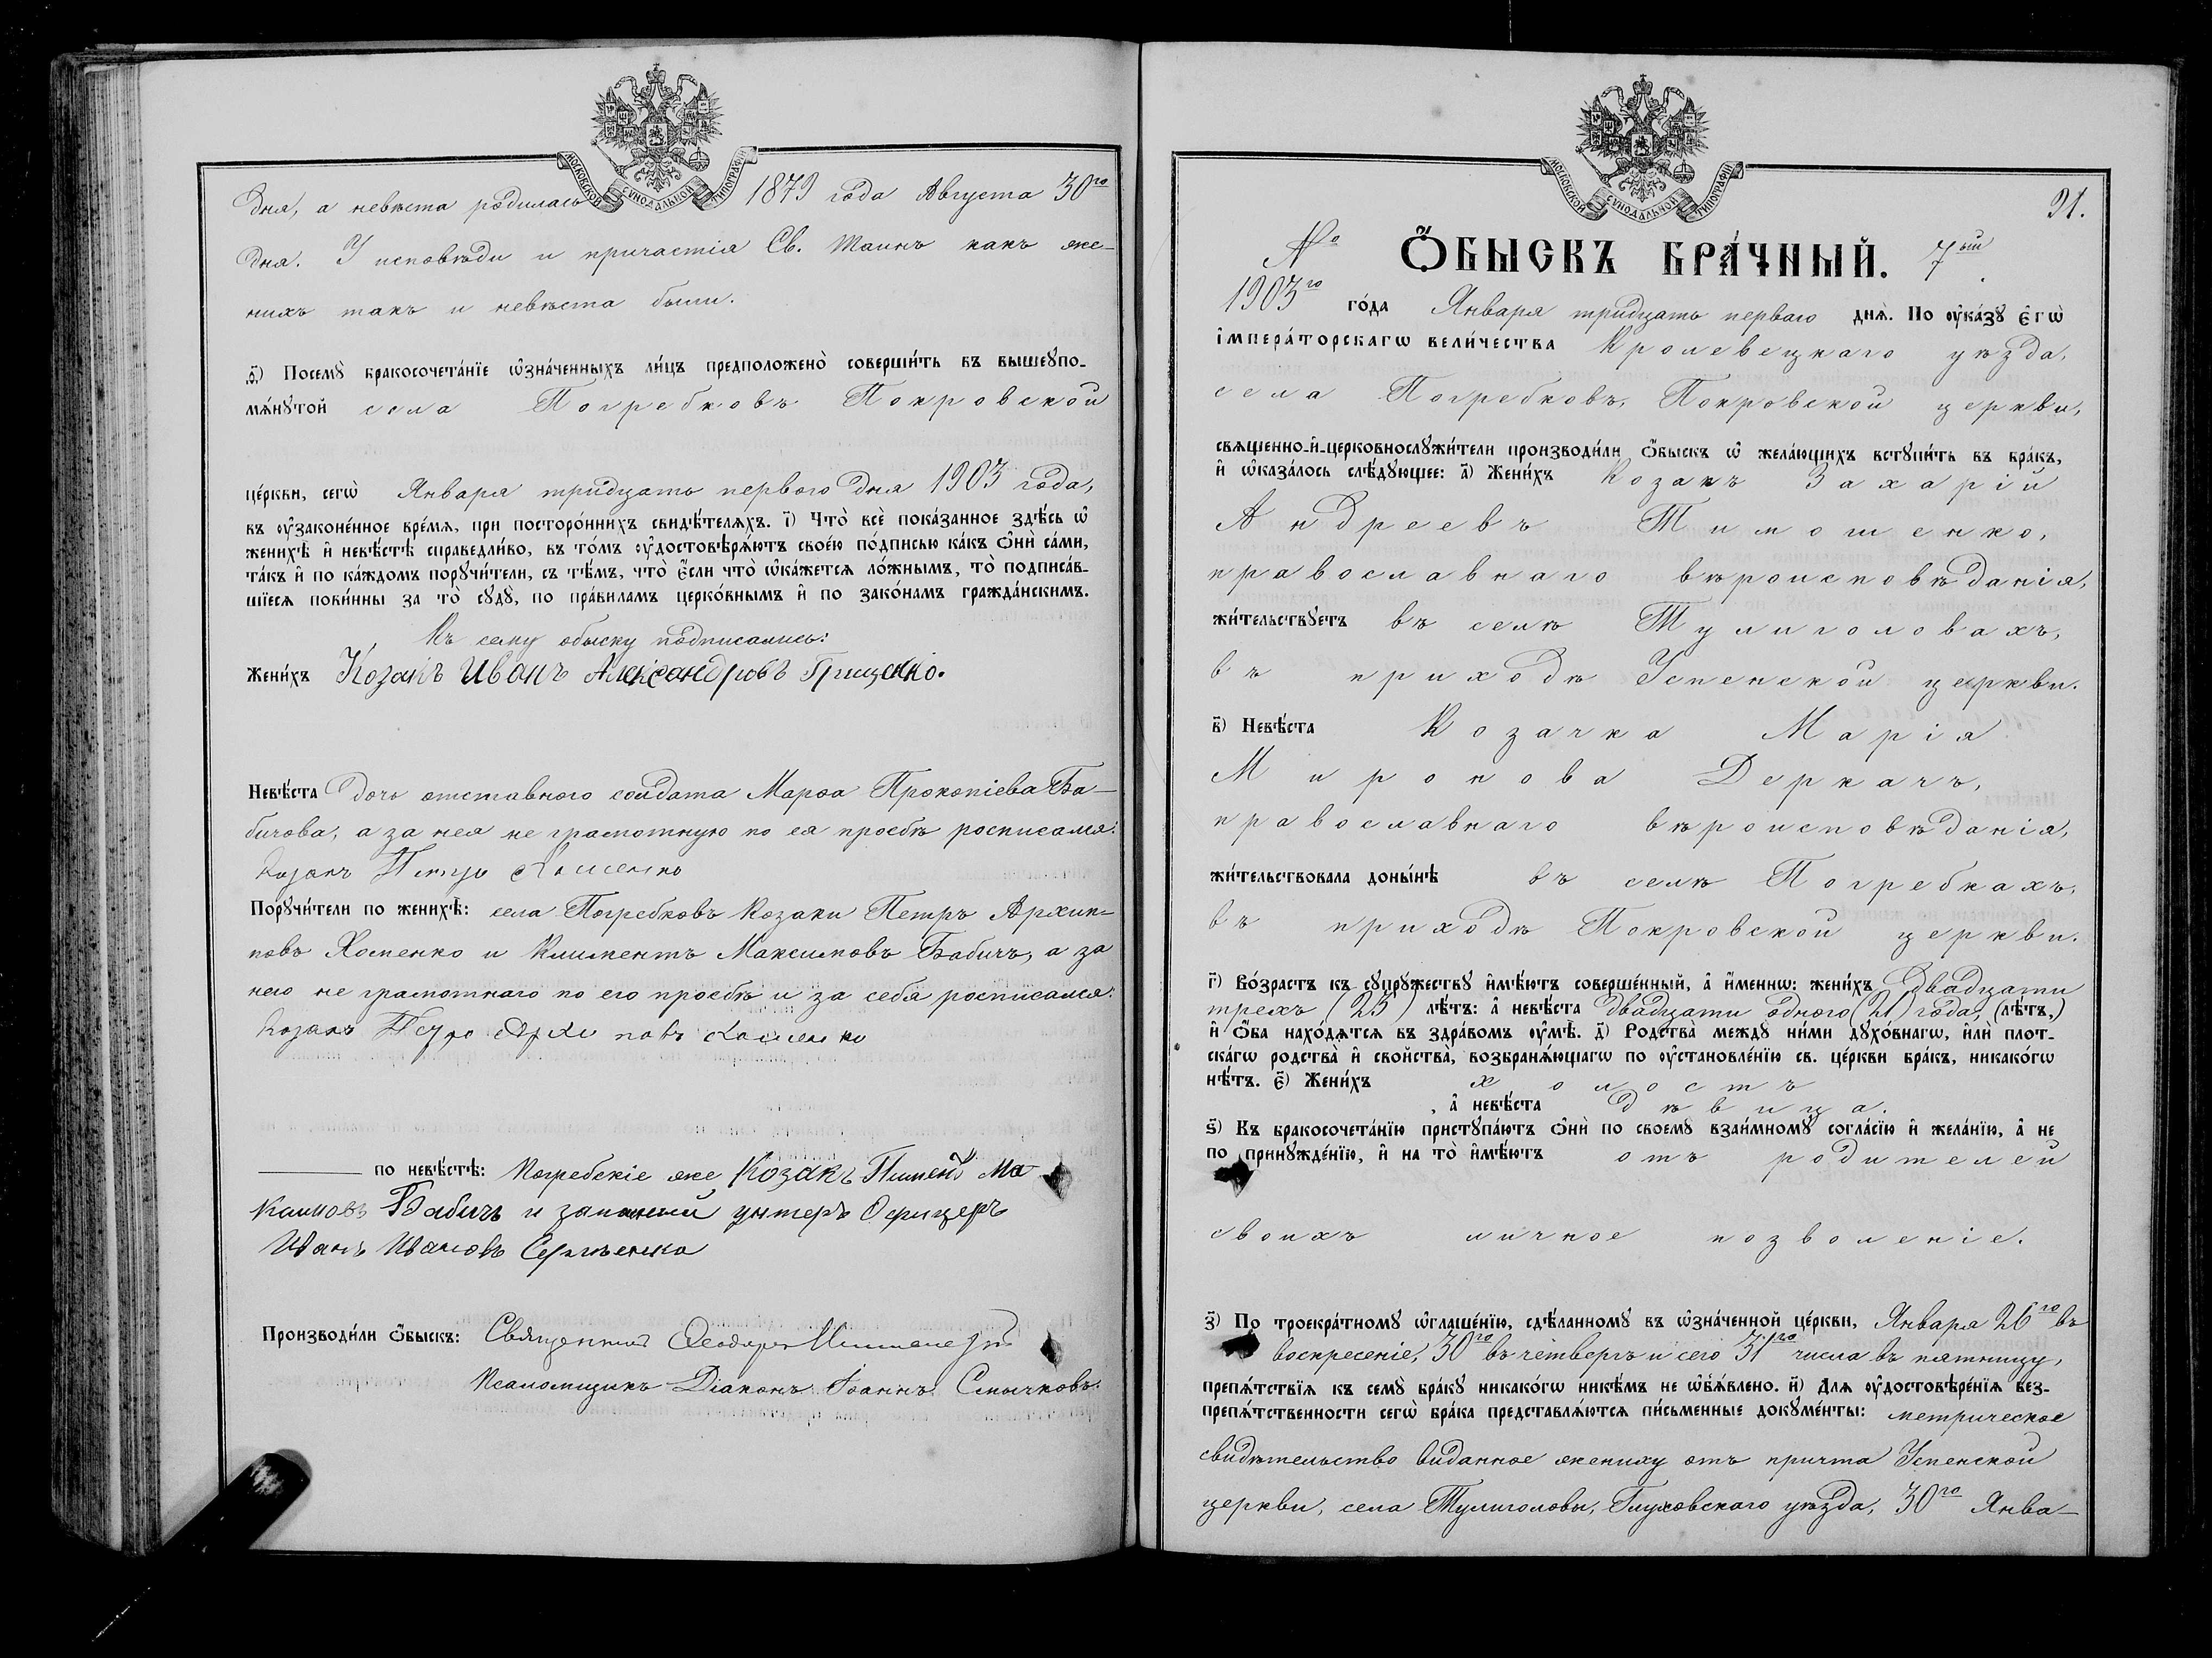 МОСКОВСКОЙ СѴНОДАЛЬНОЙ ТИПОГРАФІИ
дня, а невѣста родилась 1879 года Августа 30го
дня. У исповѣди и причастія Св. Таинъ какъ же-
нихъ такъ и невѣста были.
ѳ҃) Посемꙋ̀ бракосочета́нїе ѡ҆зна́ченныхъ ли́цъ предположено̀ соверши́ть въ вышеꙋпо-
мѧ́нꙋтой села Погребковъ Покровской
це́ркви, сегѡ̀ Января тридцать первого дня 1903 года,
въ ᲂу҆законе́нное вре́мѧ, при посторо́ннихъ свидѣ́телѧхъ. і҃) Что̀ всѐ пока́занное здѣ́сь ѡ҆
женихѣ̀ и҆ невѣ́стѣ справедли́во, въ то́мъ ᲂу҆достовѣрѧ́ютъ свое́ю по́дписью ка́къ ѻ҆нѝ са́ми,
та́къ и҆ по ка́ждомъ порꙋчи́тели, съ тѣ́мъ, что̀ є҆́сли что̀ ѡ҆ка́жетсѧ ло́жнымъ, то̀ подписа́в-
шїесѧ пови́нны за то̀ сꙋдꙋ̀, по пра́виламъ церко́внымъ и҆ по зако́намъ гражда́нскимъ.
Къ сему обыску подписались:
Жени́хъ Козакъ Иванъ Александровъ Грищенко.
Невѣ́ста дочь отставного солдата Марѳа Прокопіева Ба-
бичова, а за нея не грамотную по ея просьбѣ росписался:
Козакъ
Порꙋчи́тели по женихѣ̀: села Погребковъ Козаки Петръ Архип-
повъ Хоменко и Климентъ Максимовъ Бабичъ, а за
него не грамотнаго по его просьбѣ и за себя росписался:
Козакъ
по невѣ́стѣ: Погребскіе же Козакъ Пименъ Ма
Бабичъ и запасный унтеръ Офицеръ
Иванъ Ивановъ Сергѣенко
Производи́ли ѻ҆́быскъ: Священникъ Ѳеодоръ
Псаломщикъ Діаконъ Іоаннъ Смычковъ.
МОСКОВСКОЙ СѴНОДАЛЬНОЙ ТИПОГРАФІИ
91.
№ Ѻ҆́БЫСКЪ БРА́ЧНЫЙ. 7ый
1903го го́да Января тридцать перваго днѧ̀. По ᲂу҆ка́зꙋ є҆гѡ̀
і҆мпера́торскагѡ вели́чества Кролевецкаго уѣзда,
села Погребковъ, Покровской церкви,
свѧщенно-и҆-церковнослꙋжи́тели производи́ли ѻ҆́быскъ ѡ҆ жела́ющихъ встꙋпи́ть въ бра́къ,
и҆ ѡ҆каза́лось слѣ́дꙋющее: а҃) Жени́хъ Козакъ Захарій
Андреевъ Тимошенко,
православнаго вѣроисповѣданія,
жи́тельствꙋетъ въ селѣ Тулиголовахъ,
въ приходѣ Успенской церкви.
в҃) Невѣ́ста Козачка Марія
Миронова Деркачъ,
православнаго вѣроисповѣданія,
жи́тельствовала доны́нѣ въ селѣ Погребкахъ,
въ приходѣ Покровской церкви.
г҃) Во́зрастъ къ сꙋпрꙋ́жествꙋ и҆мѣ́ютъ соверше́нный, а҆ и҆́меннѡ: жени́хъ двадцати
трехъ (23) лѣ́тъ: а҆ невѣ́ста двадцати одного (21) года, (лѣ́тъ,)
и҆ ѻ҆́ба нахо́дѧтсѧ въ здра́вомъ ᲂу҆мѣ̀. д҃) Родства̀ междꙋ ни́ми дꙋхо́внагѡ, и҆лѝ плот-
ска́гѡ родства̀ и҆ свойства̀, возбранѧ́ющагѡ по ᲂу҆становле́нїю св. це́ркви бра́къ, никако́гѡ
нѣ́тъ. є҃) Жени́хъ холостъ
, а҆ невѣ́ста дѣвица.
ѕ҃) Къ бракосочета́нїю пристꙋпа́ютъ ѻ҆нѝ по своемꙋ̀ взаи́мномꙋ согла́сїю и҆ жела́нїю, а҆ не
по принꙋжде́нїю, и҆ на то̀ и҆мѣ́ютъ отъ родителей
своихъ личное позволеніе.
з҃) По троекра́тномꙋ ѡ҆глаше́нїю, сдѣ́ланномꙋ въ ѡ҆зна́ченной це́ркви, Января 26го въ
воскресеніе, 30го въ четвергъ и сего 31го числа въ пятницу,
препѧ́тствїѧ къ семꙋ̀ бра́кꙋ никако́гѡ никѣ́мъ не ѡ҆б̾ѧ́влено. и҃) Длѧ ᲂу҆достовѣре́нїѧ без-
препѧ́тственности сегѡ̀ бра́ка представлѧ́ютсѧ пи́сьменные докꙋме́нты: метрическое
свидѣтельство виданное жениху отъ причта Успенской
церкви, села Тулиголовы, Глуховскаго уѣзда, 30го Янва-